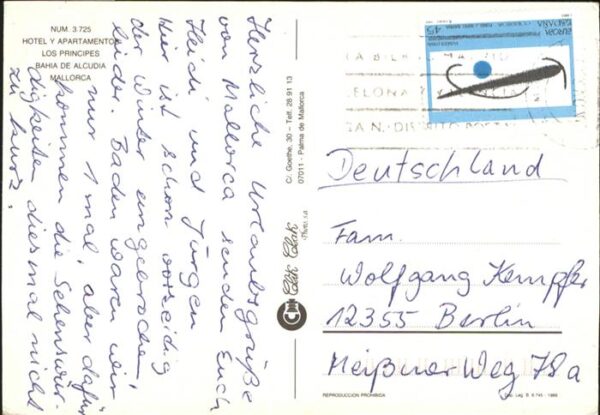 NUM. 3.725
HOTEL Y APARTAMENTOS
LOS PRINCIPES
BAHIA DE ALCUDIA
MALLORCA
Herzliche Urlaubsgrüße
von Mallorca senden Euch
Heidi und Jürgen
Hier ist schon vorzeitig
der Winter eingebrochen,
leider. Baden waren wir
nur 1 mal, aber dafür
kommen die Sehenswür-
digkeiten diesmal nicht
zu kurz.
C/. Goethe, 30 - Telf. 28 91 13
07011 - Palma de Mallorca
Clik Clak
EUROPA
ESPAÑA
45
Deutschland
Fam.
Wolfgang Kempfer
12355 Berlin
Meißner Weg 78a
REPRODUCCION PROHIBIDA
Dep. Leg. B. 9.745 - 1989